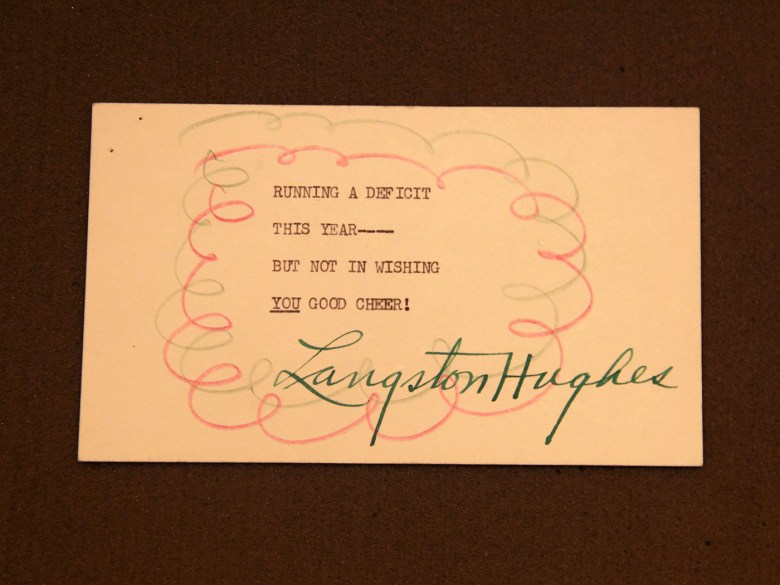 RUNNING A DEFICIT
THIS YEAR----
BUT NOT IN WISHING
YOU GOOD CHEER!
Langston Hughes